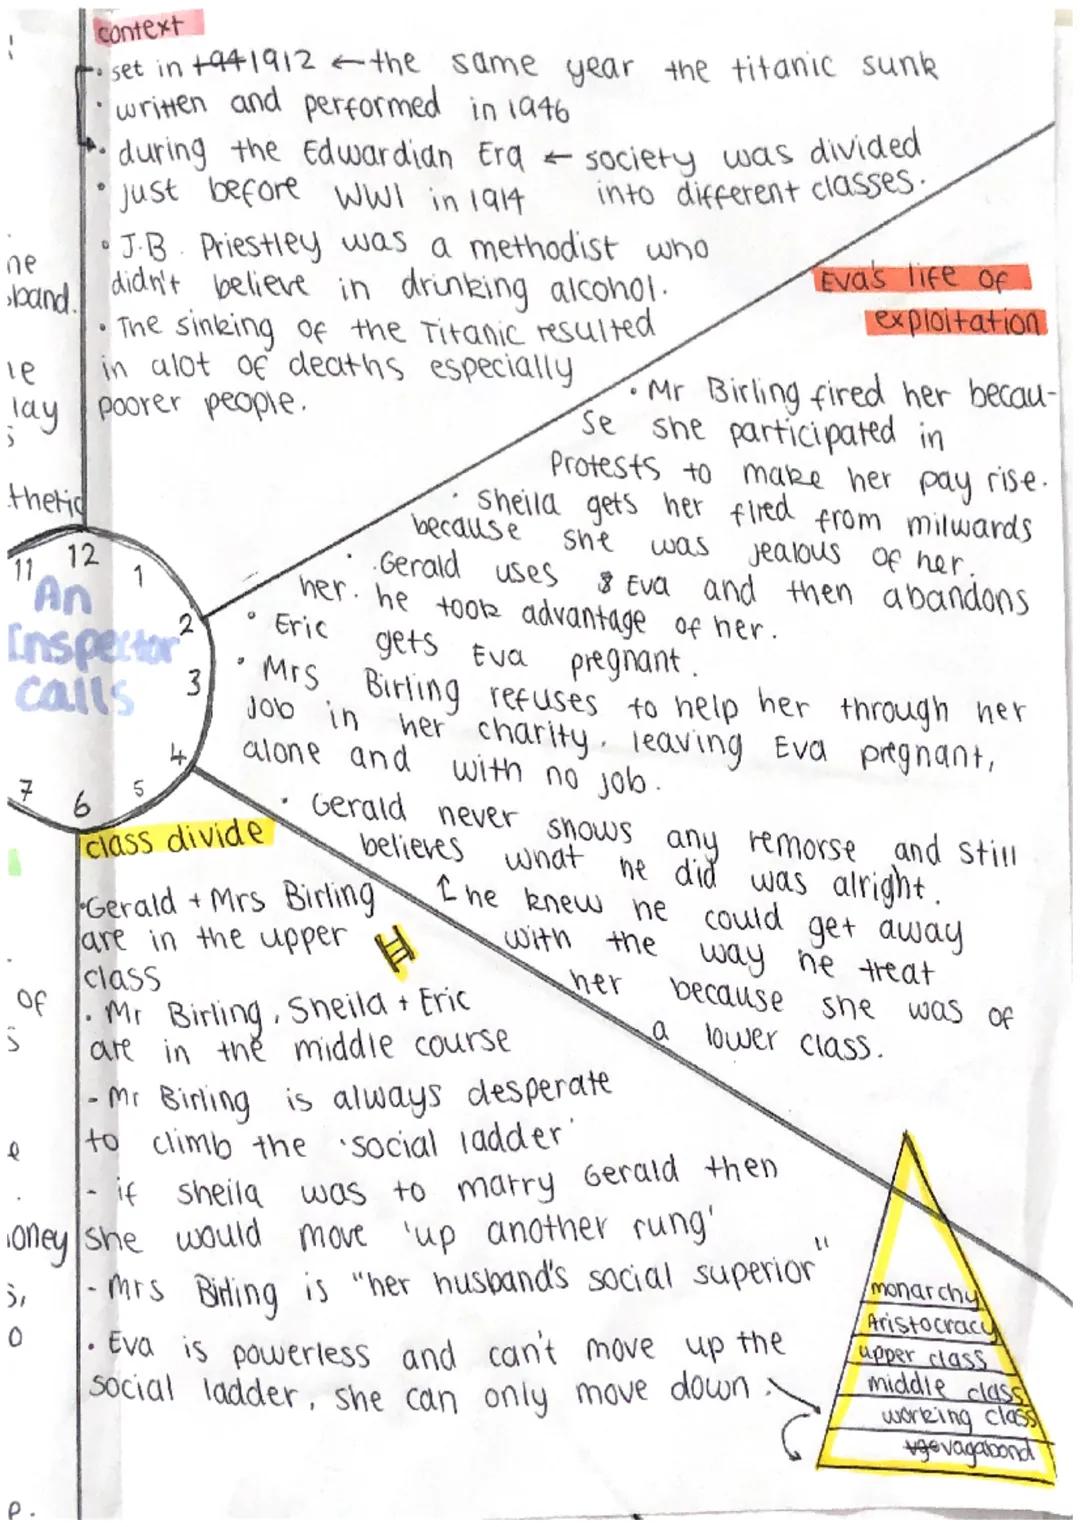 context
• set in 1941912 ← the same year the titanic sunk
• written and performed in 1946
• during the Edwardian Era ← society was divided
into different classes.
• just before WW1 in 1914
• J.B. Priestley was a methodist who
didn't believe in drinking alcohol.
• The sinking of the Titanic resulted
in alot of deaths especially
poorer people.
Eva's life of
exploitation
• Mr Birling fired her becau-
se she participated in
Protests to make her pay rise.
• Sheila gets her fired from milwards
because she was jealous of her.
• Gerald uses Eva and then abandons
her. he took advantage of her.
• Eric gets Eva pregnant.
• Mrs Birling refuses to help her through her
Job in her charity, leaving Eva pregnant,
alone and with no job.
• Gerald never shows any remorse and still
believes what he did was alright.
↑ he knew he could get away
with the way he treat
her because she was of
a lower class.
12
11
1
An
2
Inspector
3
Calls
4
5
7
6
class divide
• Gerald + Mrs Birling
are in the upper
class
• Mr Birling, Sheila + Eric
are in the middle course
- Mr Birling is always desperate
to climb the 'social ladder'
- if sheila was to marry Gerald then
she would move 'up another rung'
- Mrs Birling is "her husband's social superior"
• Eva is powerless and can't move up the
social ladder, she can only move down.
monarchy
Aristocracy
upper class
middle class
working class
vagabond
ne
band.
lay
thetic
of
s
e
oney
s,
o
p.